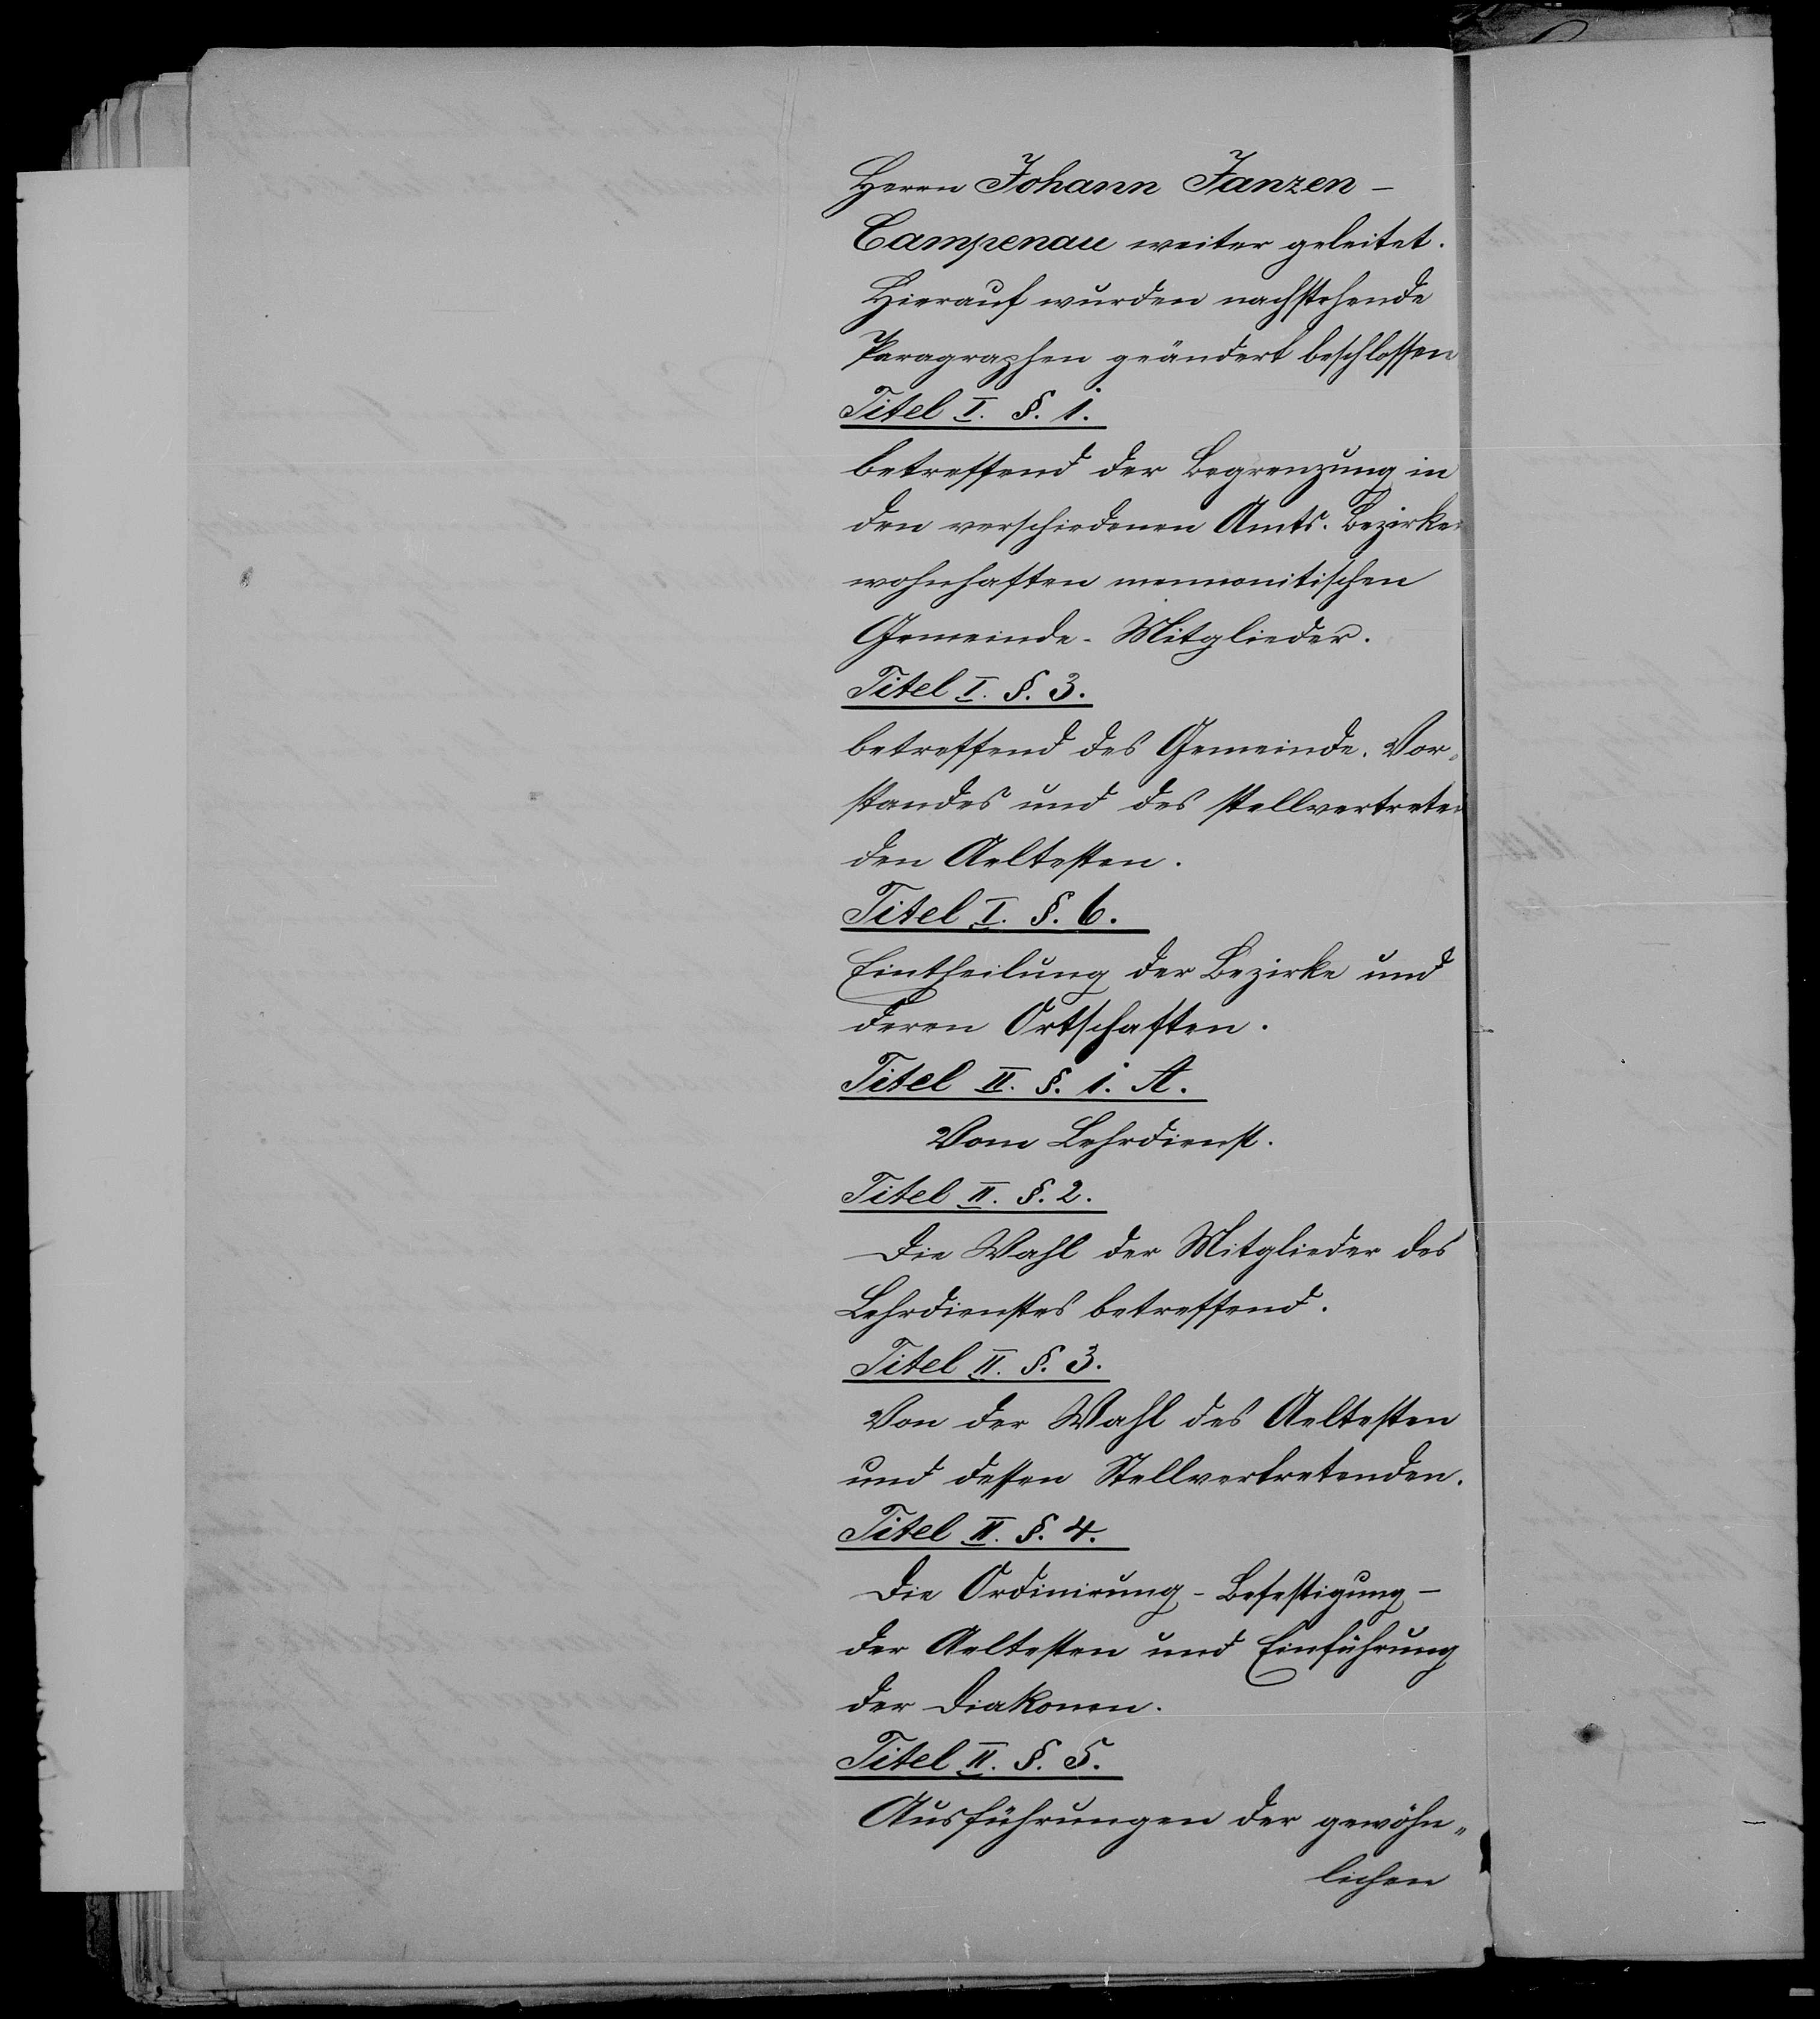 Herrn Johann Janzen -
Campenau weiter geleitet.
Hierauf wurden nachstehende
Paragraphen geändert beschlossen
Titel I. §. 1.
betreffend der Begrenzung in
den verschiedenen Amts. Bezirken
wohnhaften mennonitischen
Gemeinde-Mitglieder.
Titel I. §. 3.
betreffend des Gemeinde. Vor„
standes und des stellvertreten
den Aeltesten.
Titel I. §. 6.
Eintheilung der Bezirke und
deren Ortschaften.
Titel II. §. 1. A.
Vom Lehrdienst.
Titel II. §. 2.
Die Wahl der Mitglieder des
Lehrdienstes betreffend.
Titel II. §. 3.
Von der Wahl des Aeltesten
und dessen Stellvertretenden.
Titel II. §. 4.
Die Ordinirung - Befestigung -
der Aeltesten und Einführung
der Diakonen.
Titel II. §. 5.
Ausführungen der gewöhn„
lichen